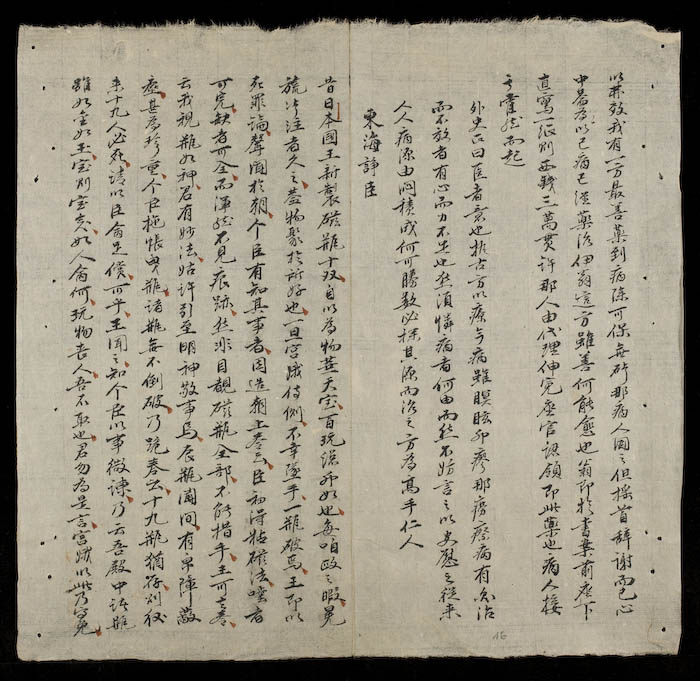 效我有一方最善藥到病除可保無那病人聞之但搖首辭謝而已心
中為以已病已從藥治但翁這方雖善何能愈也翁即於書案前座下
直寫一張別西錢三萬貫許那人由代理伸完座官認領即此藥也病人接
了霍然而起
外史氏曰医者意也古方以療今病雖瞑眩瘳那瘵病有治
而不效者有心而力不也然須憐病者何由而然不妨言之以史慰之從來
人人病源由悶積成何可勝數必探其源而治之方為高手仁人
東海諍臣
昔日本國王新製磁瓶十双自以為物華天宝百玩如也每自政之暇晃
旒注者久之蓋物聚於所好也一旦宮娥侍側不幸墜手一瓶破焉王即以
死罪論聲聞於朝个臣有知其事者因造朝上奏云臣初得粘磁法者
可完缺者可全而渾然不見痕跡然非目覩磁瓶全部不能措手王可其奏
云我視瓶如神君有妙法姑許引至明神敬事焉辰瓶閣間有帛障蔽
座甚為珍重个臣拖帳曳瓶諸瓶無不倒破乃跪奏云十九瓶猶存則後
來十九人必死請以臣命先償可乎王聞之知个臣以事微諫乃云吾殿中諸瓶
雖如宝如玉宝則宝矣如人命何玩物丧人吾不取也君勿為是言宮娥以此乃得免
16